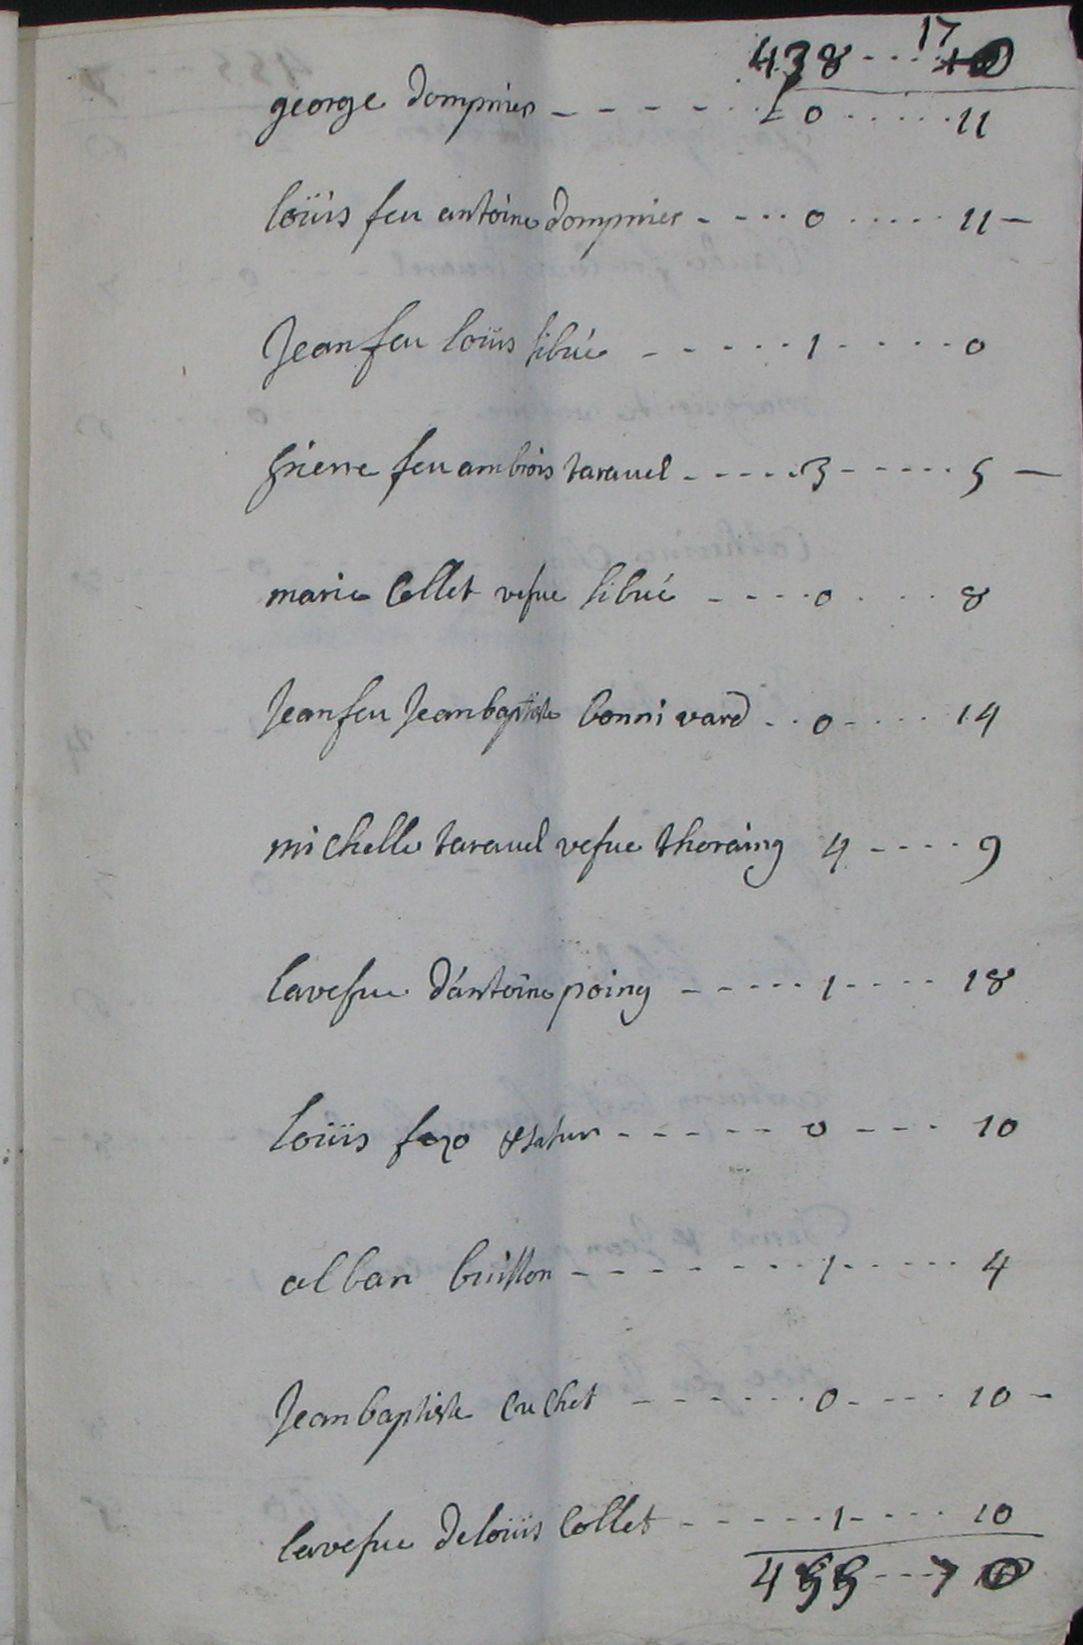 438 - - - 17
george Dompnier - - - - - - 0 - - - - - 11
loüis feu antoine Dompnier - - - - 0 - - - - - 11 -
Jean feu loüis sibué - - - - - 1 - - - - - 0
pierre feu ambrois taravel - - - - - 3 - - - - - 5 -
marie Collet vefue sibué - - - - 0 - - - - 8
Jean feu Jean baptiste bonnivard - - 0 - - - - 14
michelle taravel vefue thoraing 4 - - - - 9
la vefue d'antoine poing - - - - - 1 - - - - 18
loüis - - - - - - 0 - - - 10
alban buisson - - - - - - - 1 - - - - - 4
Jean baptiste Cuchet - - - - - - 0 - - - - 10 -
la vefue de loüis Collet - - - - - 1 - - - - 10
455 - - - 7